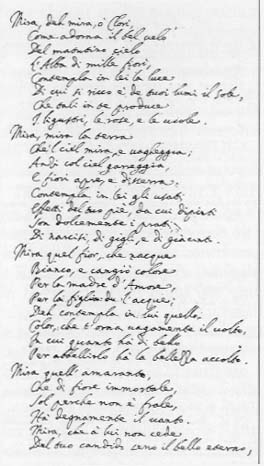 Mira, deh mira, ò Clori,
Come adorna il bel velo
Del matutino cielo
L'Alba di mille fiori,
Contempla in lei la luce
Di cui sì ricco è de tuoi lumi il Sole,
Che tali in te produce
I ligustri, le rose, e le viole.
Mira, mira la terra
Che'l ciel mira, e vagheggia;
Andi col ciel gareggia,
E fiori apre, e disserra.
Contempla in lei gli usati
Effetti del tuo piè, da cui dipinti
Son dolcemente i prati
Di narcisi, di gigli, e di giacinti.
Mira quel fior, che nacque
Bianco, e cangiò colore
Per la madre d'Amore,
Per la figlia de l'acque;
Deh contempla in lui quello
Color, che t'orna vagamente il volto,
In cui quanto hà di bello
Per abbellirlo hà la bellezza accolto.
Mira quell'amaranto,
Che di fiore immortale,
Sol perche non è frale,
Hà degnamente il vanto.
Mira, che à lui non cede
Del tuo candido seno il bello eterno,